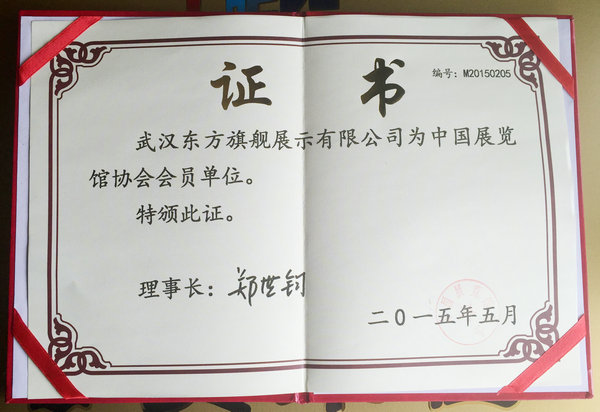 证书
编号：M20150205
武汉东方旗舰展示有限公司为中国展览
馆协会会员单位。
特颁此证。
理事长：郑世钧
二〇一五年五月